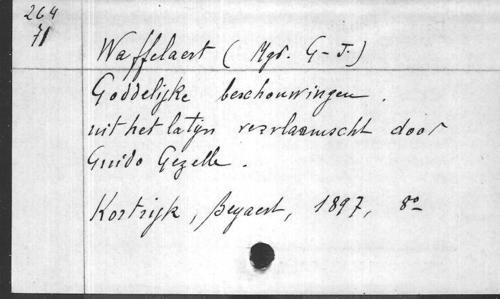 264
71
Waffelaert (Mgr. G-J.)
Goddelijke beschouwingen.
uit het latijn vervlaamscht door
Guido Gezelle.
Kortrijk, Beyaert, 1897, 8o